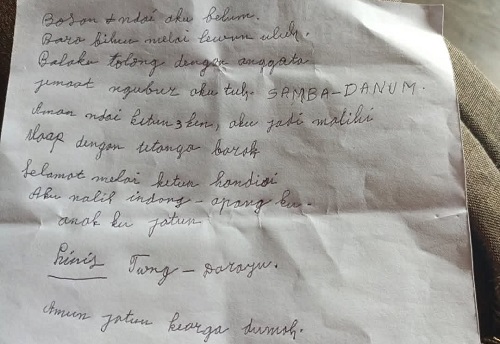 Bosan + ndai aku belum.
Bara bihin melai lewun uluh.
Balaku tolong dengan anggota
jemaat ngubur aku tuh SAMBA-DANUM.
Aman ndai ketun 3 ken, aku jadi malihi
utap dengan tetanga barok
Selamat melai ketun handiai
Aku nalih indong - apang ku.
anak ku jatun
Kinis Twng - Darayu.
Amun jatun kearga dumah.